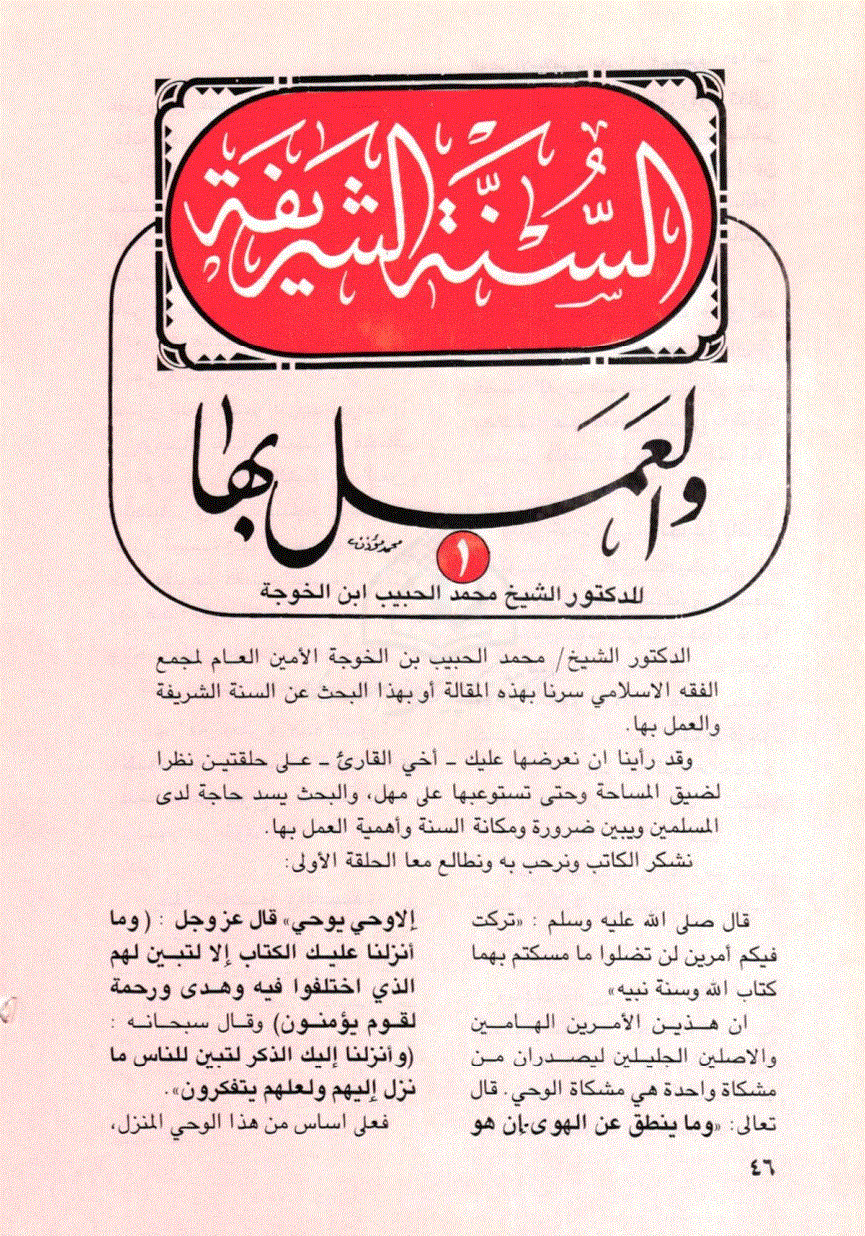 السُّنَّة الشريفة
والعَمَل بها
محمد مؤذن
١
للدكتور الشيخ محمد الحبيب ابن الخوجة
الدكتور الشيخ/ محمد الحبيب بن الخوجة الأمين العام لمجمع
الفقه الاسلامي سرنا بهذه المقالة أو بهذا البحث عن السنة الشريفة
والعمل بها.
وقد رأينا ان نعرضها عليك - أخي القارئ - على حلقتين نظرا
لضيق المساحة وحتى تستوعبها على مهل، والبحث يسد حاجة لدى
المسلمين ويبين ضرورة ومكانة السنة وأهمية العمل بها.
نشكر الكاتب ونرحب به ونطالع معا الحلقة الأولى:
قال صلى الله عليه وسلم : «تركت
فيكم أمرين لن تضلوا ما مسكتم بهما
كتاب الله وسنة نبيه»
ان هذين الأمرين الهامين
والاصلين الجليلين ليصدران من
مشكاة واحدة هي مشكاة الوحي. قال
تعالى: «وما ينطق عن الهوى.إن هو
إلا وحي يوحي» قال عز وجل : (وما
أنزلنا عليك الكتاب إلا لتبين لهم
الذي اختلفوا فيه وهدى ورحمة
لقوم يؤمنون) وقال سبحانه :
(وأنزلنا إليك الذكر لتبين للناس ما
نزل إليهم ولعلهم يتفكرون».
فعلى اساس من هذا الوحي المنزل،
٤٦